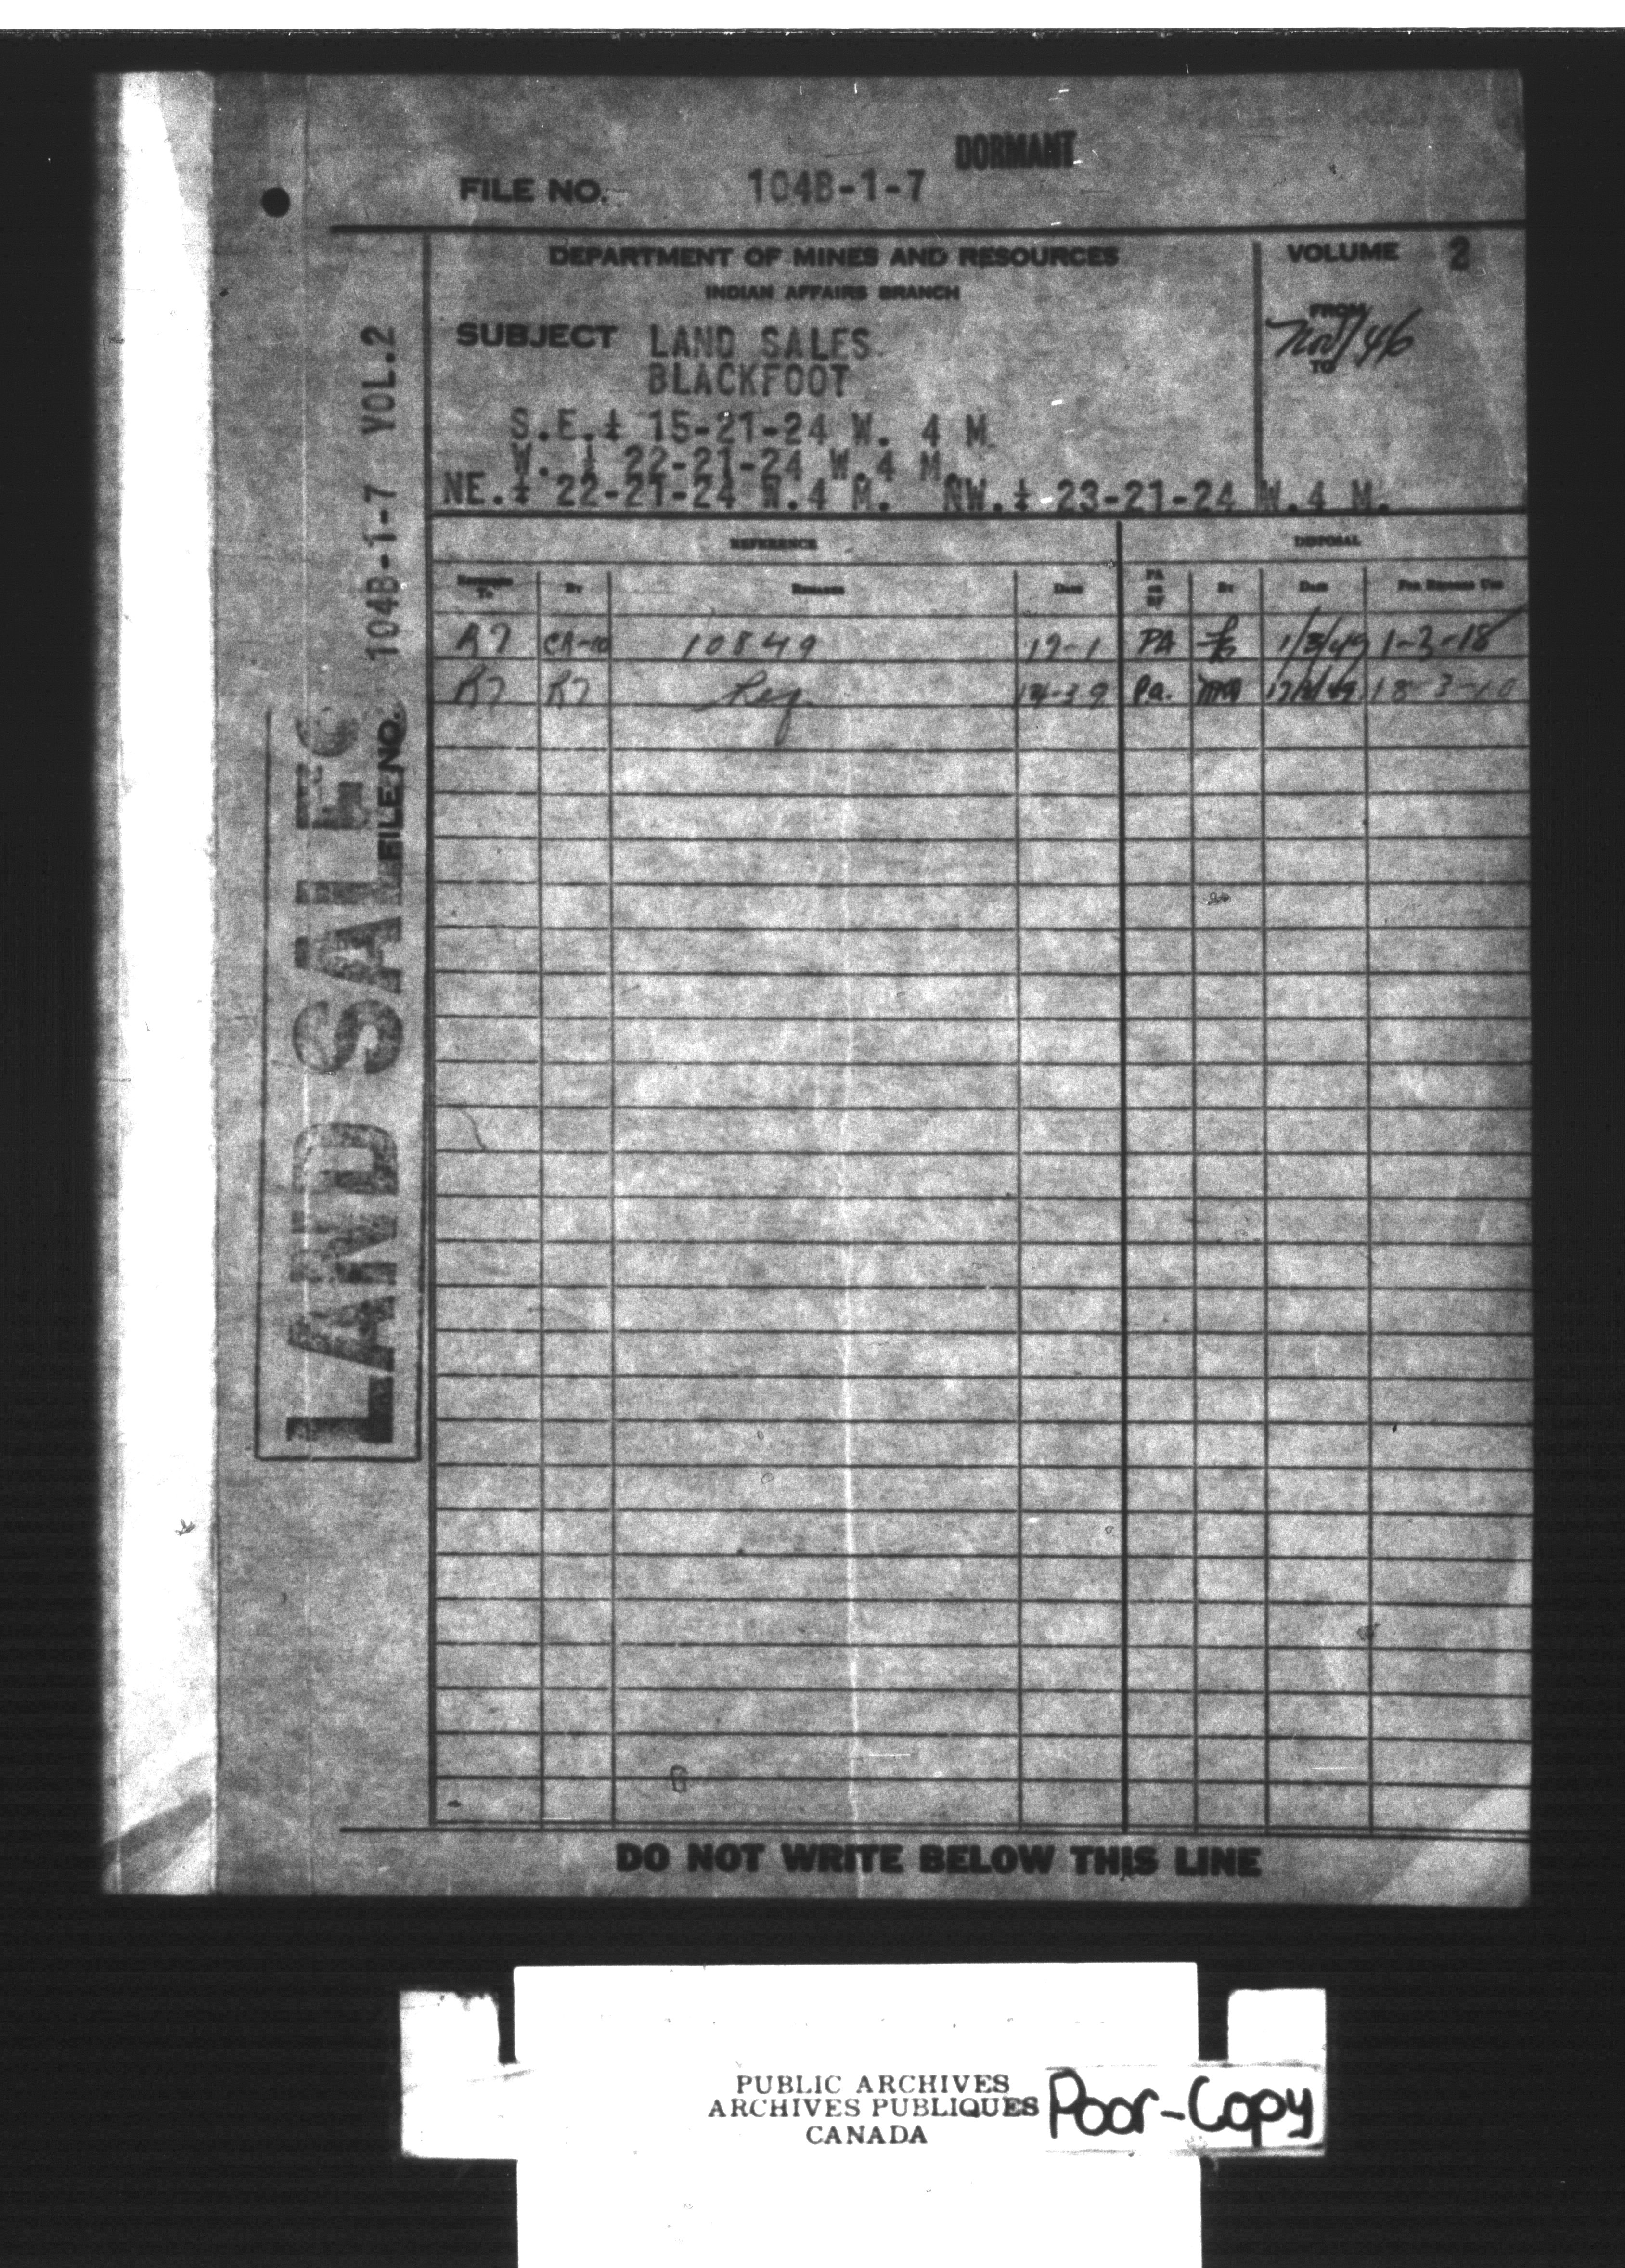 DORMANT
FILE NO. 104B-1-7
DEPARTMENT OF MINES AND RESOURCES
INDIAN AFFAIRS BRANCH
VOLUME 2
FROM
Nov/46
TO
SUBJECT LAND SALES
BLACKFOOT
S.E.¼ 15-21-24 W. 4 M.
W. ½ 22-21-24 W.4 M.
NE.¼ 22-21-24 W.4 M. NW.¼ 23-21-24 W.4 M.
REFERENCE DISPOSAL
To By Remarks Date PA or BF By Date For Record Use
R7 CR-10 10849 19-1 PA 1/3/49 1-3-18
R7 R7 Req. 14-3-9 Pa. 18-3-10
FILE NO. 104B-1-7 VOL.2
LAND SALES
DO NOT WRITE BELOW THIS LINE
PUBLIC ARCHIVES
ARCHIVES PUBLIQUES
CANADA
Poor-Copy